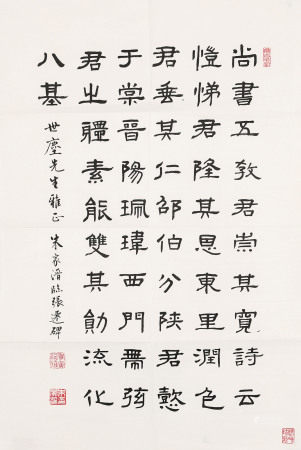 尚書五教君崇其寬詩云
愷悌君隆其恩東里潤色
君垂其仁邵伯分陝君懿
于棠晉陽珮瑋西門帶弦
君之體素能雙其勛流化
八基
世塵先生雅正 朱家濟臨張遷碑